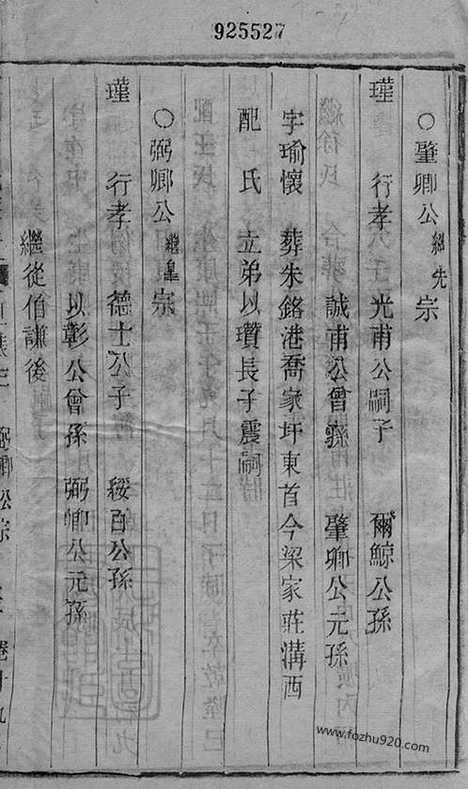 925527
○肇卿公繼先宗
瑾 行孝 光甫公嗣子 爾鯨公孫
誠甫公曾孫 肇卿公元孫
字瑜懷 葬朱鉻港喬家圩東首今梁家莊溝西
配 氏 立弟以瓚長子震嗣
○弼卿公繼皇宗
瑾 行孝 德士公子 綏百公孫
以彰公曾孫 弼卿公元孫
繼從伯謙後
弼卿公宗
www.fozhu920.com